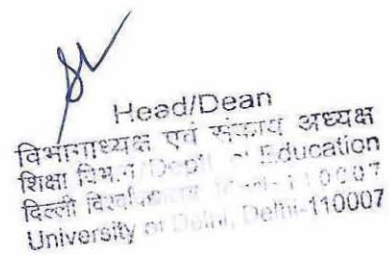 Head/Dean
विभागाध्यक्ष एवं संकाय अध्यक्ष
शिक्षा विभाग/Deptt of Education
दिल्ली विश्वविद्यालय 110007
University of Delhi, Delhi-110007